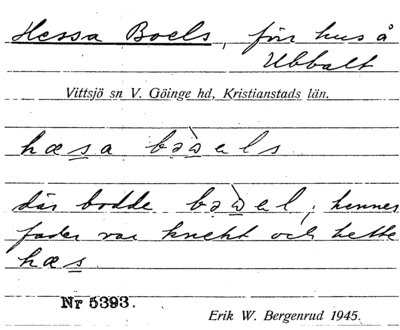 Hessa Boels, förr hus å
Ubbalt
Vittsjö sn V. Göinge hd, Kristianstads län.
hæsa bə̀ɯels
där bodde bə̀ɯel; hennes
fader var knekt och hette
hæs
Nr 5393.
Erik W. Bergenrud 1945.